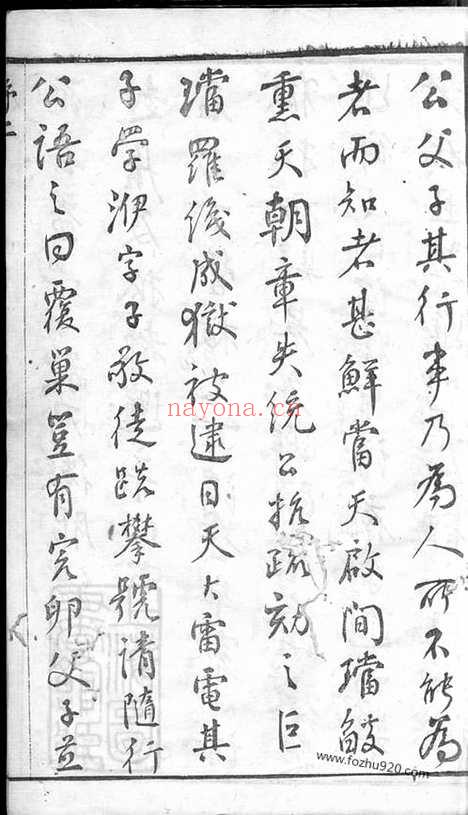 公父子其行事乃為人所不能為
者而知者甚鮮當天啟間璫餤
熏天朝章失统公抗疏劾之巨
璫羅織成獄被逮日天大雷電其
子學洢字子敬徒跣攀號請隨行
公語之曰覆巢豈有完卵父子並
序二
nayona.cn
www.fozhu920.com